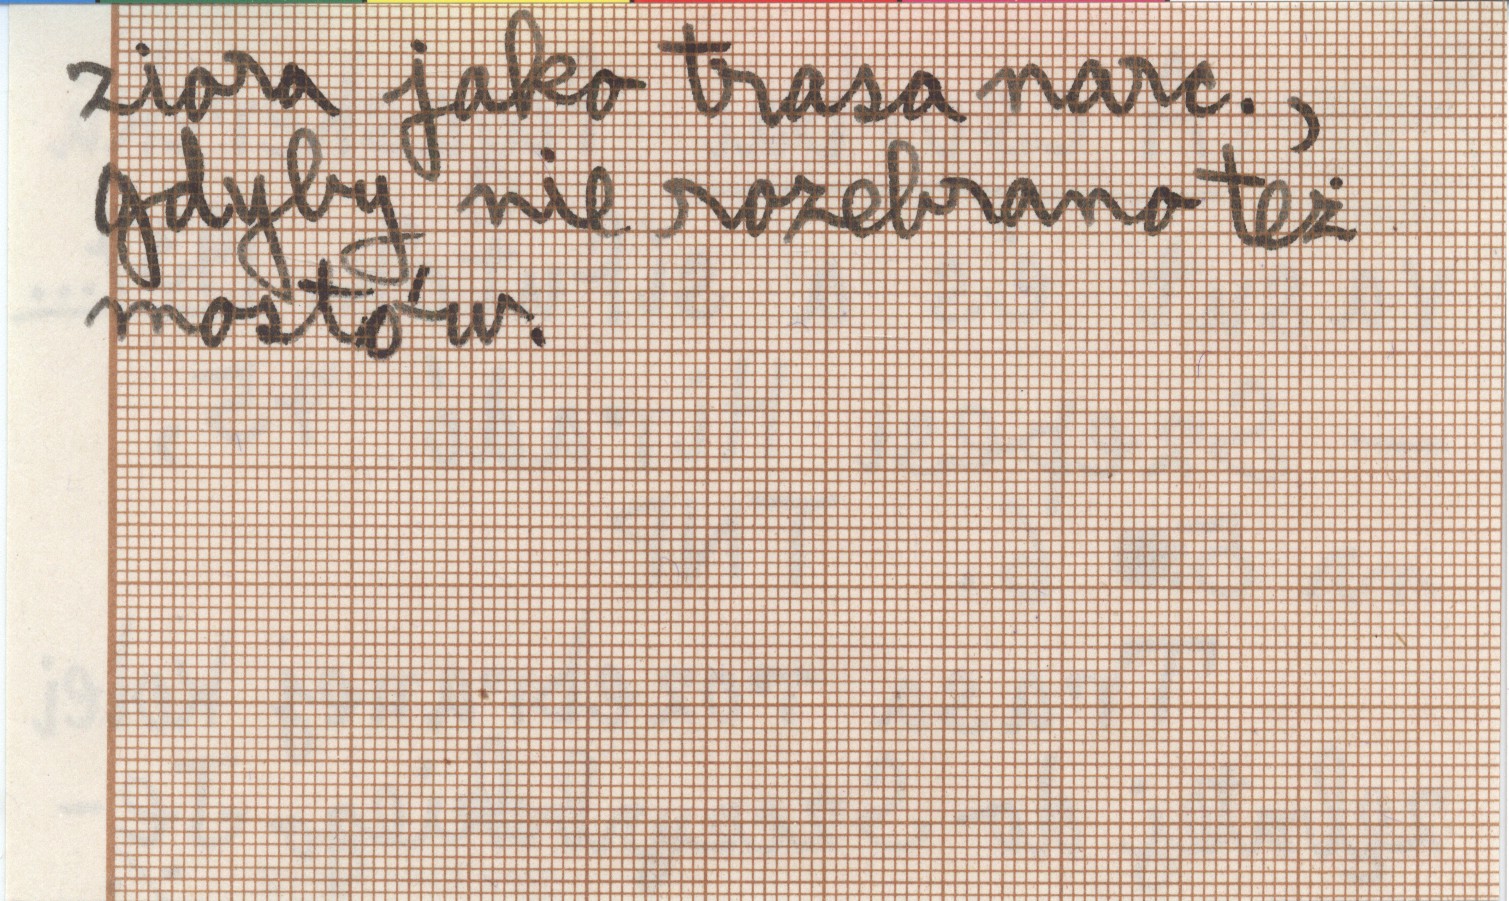 ziora jako trasa narc.,
gdyby nie rozebrano też
mostów.